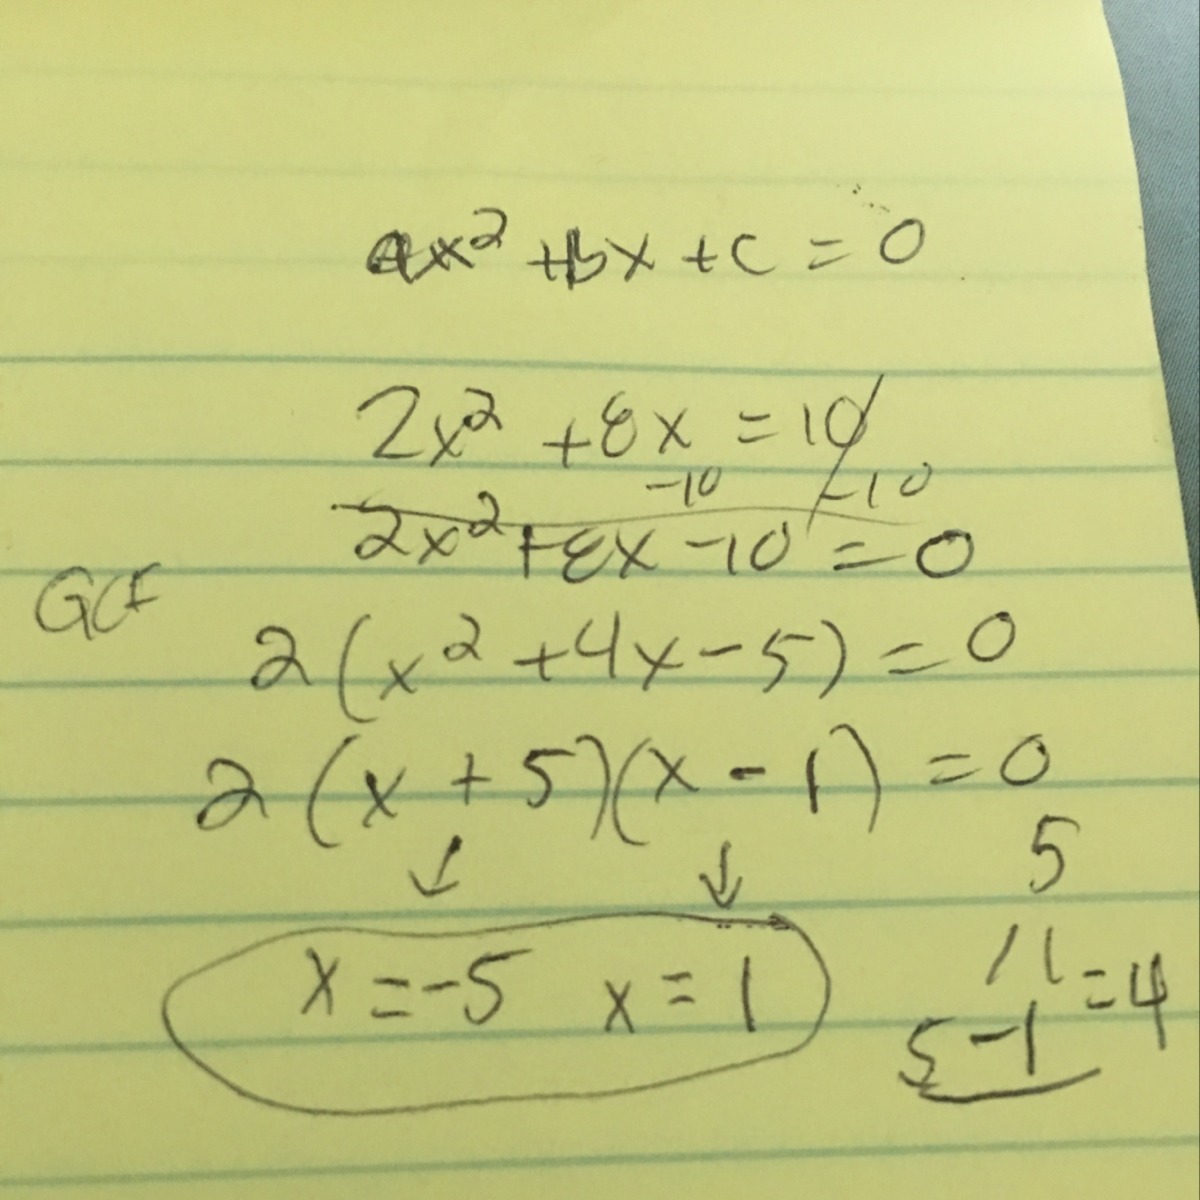 ax² + bx + c = 0
2x² + 8x = 10
-10 -10
2x² + 8x - 10 = 0
GCF
2(x² + 4x - 5) = 0
2(x + 5)(x - 1) = 0
5
/\
5 - 1 = 4
x = -5 x = 1